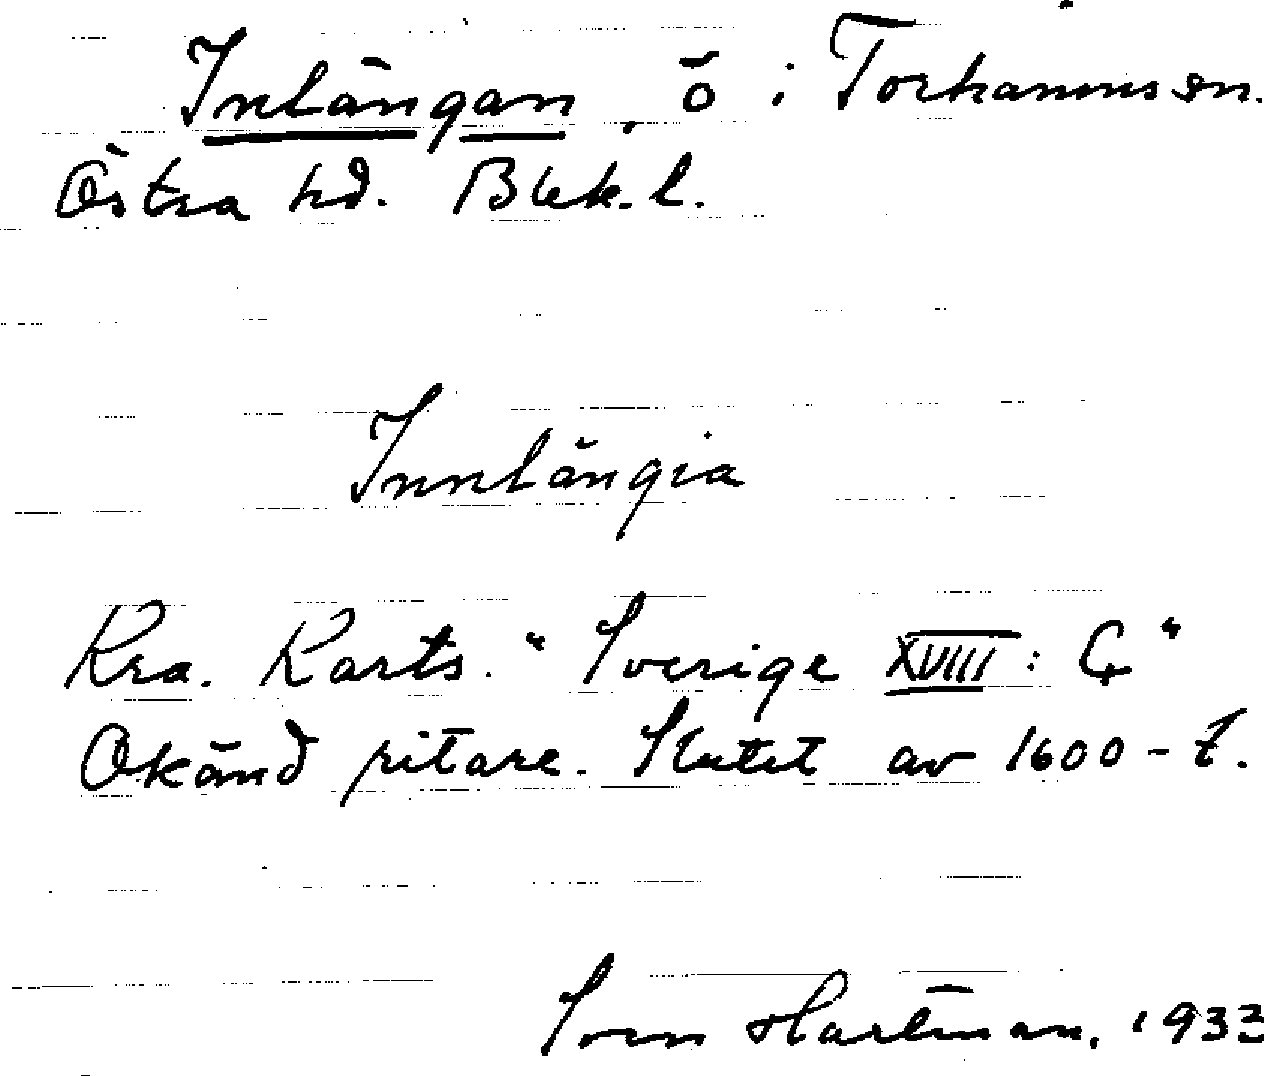 Inlängan, ö i Torhamns sn.
Östra hd. Blek. l.
Innlängia
Kra. Karts. "Sverige XVIII: G"
Okänd ritare. Slutet av 1600-t.
Sven Hartman, 1933